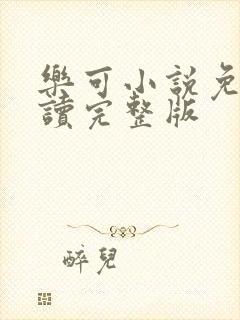 樂可小說免
讀完整版
醉兒